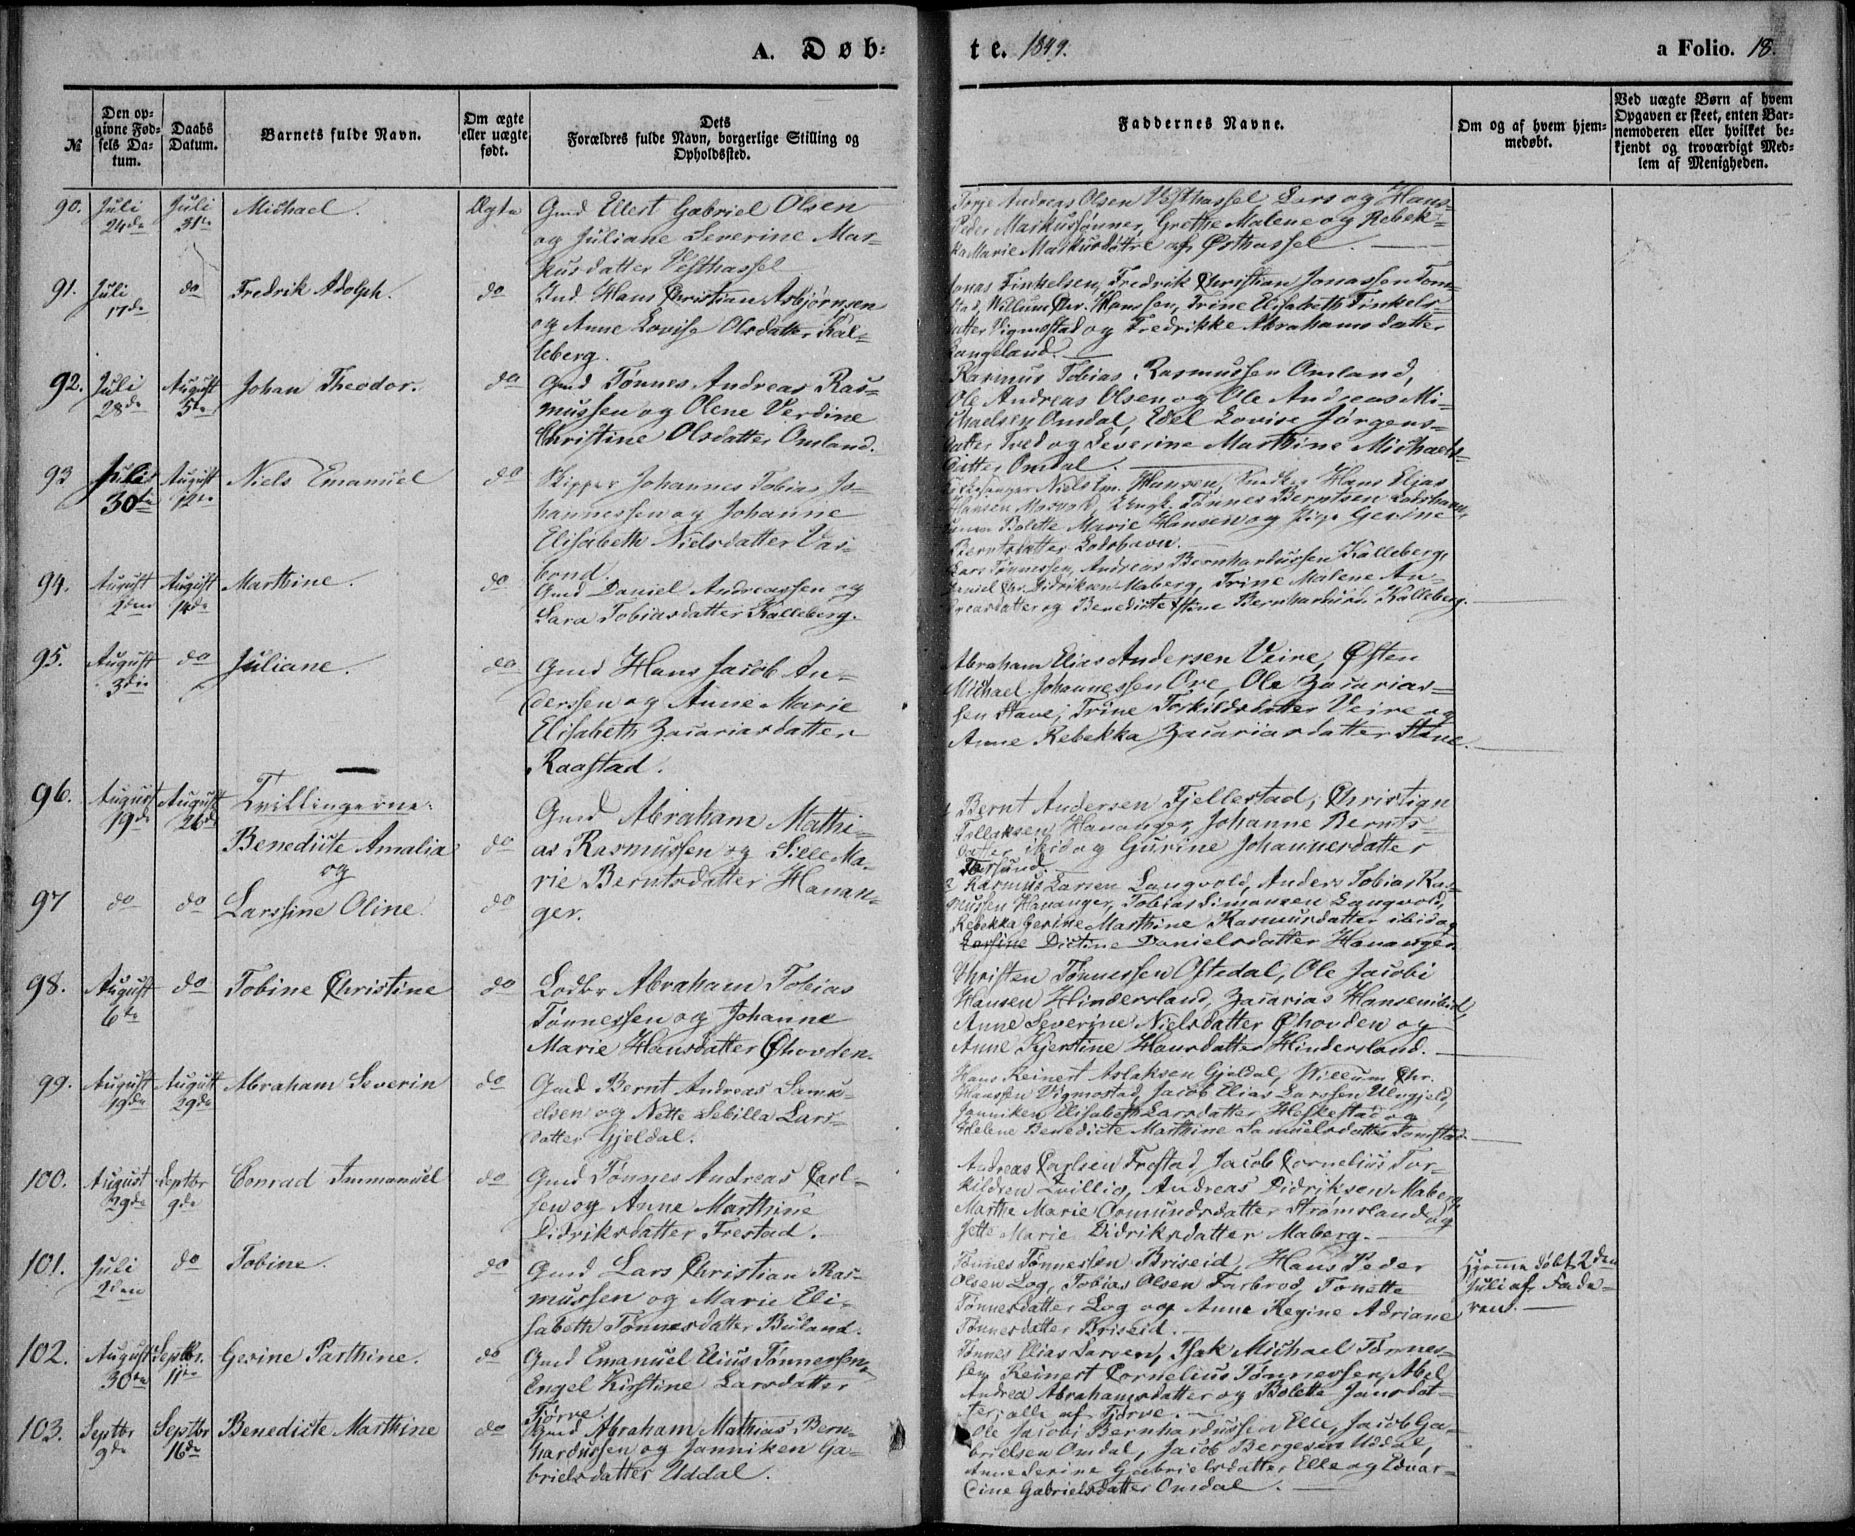 A. Døb-
te. 1849.
a Folio. 18.
№
Den op-
givne Fød-
sels Da-
tum.
Daabs
Datum.
Barnets fulde Navn.
Om ægte
eller uægte
født.
Dets
Forældres fulde Navn, borgerlige Stilling og
Opholdssted.
Faddernes Navne.
Om og af hvem hjem-
medøbt.
Ved uægte Børn af hvem
Opgaven er skeet, enten Bar-
nemoderen eller hvilket be-
kjendt og troværdigt Med-
lem af Menigheden.
90. Juli 24de Juli 31te Michael. Ægte
Gmd Ellert Gabriel Olsen
og Juliane Severine Mar-
kusdatter Vesthassel
Terje Andreas Olsen Vesthassel, Lars og Hans
Peder Markussønner, Grethe Malene og Rebek-
ka Marie Markusdøtre af Østhassel.
91. Juli 17de do Fredrik Adolph. do
Ind. Hans Christian Asbjørnsen
og Anne Lovise Olsdatter Kal-
leberg.
Jonas Finkelsen, Fredrik Christian Jonassen Tom-
stad, Willum Chr. Hanssen, Trine Elisabeth Finkels-
datter Vigmostad og Fredrikke Abrahamsdatter
Langeland.
92. Juli 28de August 5te Johan Theodor. do
Gmd Tønnes Andreas Ras-
mussen og Olene Verdine
Christine Olsdatter Omland.
Rasmus Tobias Rasmussen Omland,
Ole Andreas Olsen og Ole Andreas Mi-
chaelsen Omdal, Edel Lovise Jørgens-
datter Tved og Severine Marthine Michaels-
datter Omdal.
93 Juli 30te August 12te Niels Emanuel do
Skipper Johannes Tobias Jo-
hannessen og Johanne
Elisabeth Nielsdatter Var-
bond
Kirkesanger Niels Em. Hansen, Hans Elias
Hansen Tønnes Berntsen Lodshavn,
Bolette Marie Hansen og Pige Gerine
Berntsdatter Lodshavn.
94. August 2den August 14de Marthine. do
Gmd Daniel Andreassen og
Sara Tobiasdatter Kalleberg.
Lars Tønnessen, Andreas Bernhardussen Kalleberg,
Daniel Chr. Didriksen Maberg, Trine Malene An-
dreasdatter og Benedicte Stine Bernhardusd. Kalleberg.
95. August 3die do Juliane. do
Gmd Hans Jacob An-
derssen og Anne Marie
Elisabeth Zacariasdatter
Raastad.
Abraham Elias Andersen Veire, Østen
Michael Johannessen Ore, Ole Zacarias-
sen Stave, Trine Torkildsdatter Veire og
Anne Rebekka Zacariasdatter Stave.
96. August 19de August 26de Tvillingerne:
Benedicte Amalia do
og
97 do do Larssine Oline. do
Gmd Abraham Mathi-
as Rasmussen og Sille Ma-
rie Berntsdatter Hanan-
ger.
1 Bernt Andersen Fjellestad, Christian
Tollaksen Hananger, Johanne Bernts-
datter ibid og Gurine Johannesdatter
Farsund
2 Rasmus Larsen Langvold, Anders Tobias Ras-
mussen Hananger, Tobias Simonsen Langvold,
Rebekka Gerine Marthine Rasmusdatter ibid og
Dictine Danielsdatter Hananger.
98. August 6te do Tobine Christine do
Lodbr Abraham Tobias
Tønnessen og Johanne
Marie Hansdatter Øhovden.
Christen Tønnessen Oftedal, Ole Jacobi
Hansen Hindersland, Zacarias Hansen ibid,
Anne Severine Nielsdatter Øhovden og
Anne Kjerstine Hansdatter Hindersland.
99. August 19de August 29de Abraham Severin do
Gmd Bernt Andreas Samu-
elsen og Nette Sebilla Lars-
datter Gjeldal.
Hans Reinert Aslaksen Gjeldal, Willum Chr.
Hanssen Vigmostad, Jacob Elias Larssen Ulvgjeld,
Janniken Elisabeth Larsdatter Heskestad og
Helene Benedicte Marthine Samuelsdatter Tomstad.
100. August 29de Septbr 9de Conrad Immanuel do
Gmd Tønnes Andreas Carl-
sen og Anne Marthine
Didriksdatter Frestad.
Andreas Carlsen Frestad, Jacob Cornelius Tor-
kildsen Qvillio, Andreas Didriksen Maberg,
Marthe Marie Osmundsdatter Strømsland og
Jette Marie Didriksdatter Maberg.
101. Juli 2den do Tobine. do
Gmd Lars Christian Ras-
mussen og Marie Eli-
sabeth Tønnesdatter Buland.
Tønnes Tønnessen Briseid, Hans Peder
Olsen Log, Tobias Olsen Farbrod, Tonette
Tønnesdatter Log og Anne Regine Adriane
Tønnesdatter Briseid.
Hjemmedøbt 2den
Juli af Fade-
ren.
102. August 30te Septbr. 11te Gerine Parthine. do
Gmd Emanuel Elius Tønnessen
Engel Kirstine Larsdatter
Tjørve
Tønnes Elias Larsen, Isak Michael Tønnes-
sen, Reinert Cornelius Tønnessen, Abel
Andrea Abrahamsdatter og Bolette Jansdat-
ter, alle af Tjørve.
103. Septbr 9de Septbr 16de Benedicte Marthine do
Gmd Abraham Mathias Bern-
hardussen og Janniken Ga-
brielsdatter Uddal.
Ole Jacobi Bernhardussen Elle, Jacob Ga-
brielsen Omdal, Jacob Bergesen Uddal,
Anne Serine Gabrielsdatter Elle og Edvar-
dine Gabrielsdatter Omdal.